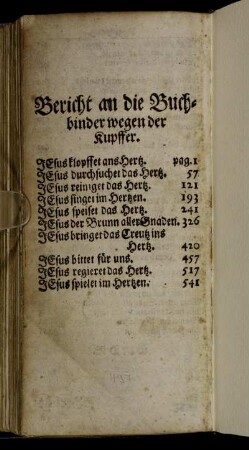 Bericht an die Buch-
binder wegen der
Kupffer.
JEsus klopffet ans Hertz. pag. 1
JEsus durchsuchet das Hertz. 57
JEsus reiniget das Hertz. 121
JEsus singet im Hertzen. 193
JEsus speiset das Hertz. 241
JEsus der Brunn aller Gnaden. 326
JEsus bringet das Creutz ins
Hertz. 420
JEsus bittet für uns. 457
JEsus regieret das Hertz. 517
JEsus spielet im Hertzen. 541